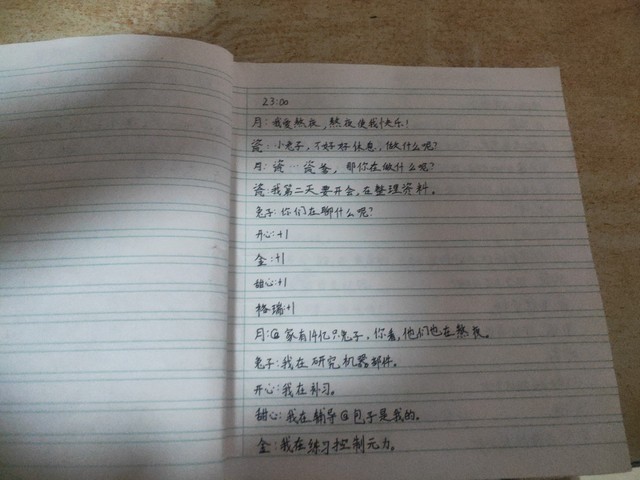 23:00
月:我爱熬夜,熬夜使我快乐!
瓷:小兔子,不好好休息,做什么呢?
月:瓷…瓷爹,那你在做什么呢?
瓷:我第二天要开会,在整理资料。
兔子:你们在聊什么呢?
开心:+1
金:+1
甜心:+1
格瑞:+1
月:@家有14亿只兔子,你看,他们也在熬夜
兔子:我在研究机器部件。
开心:我在补习。
甜心:我在辅导@包子是我的。
金:我在练习控制元力。